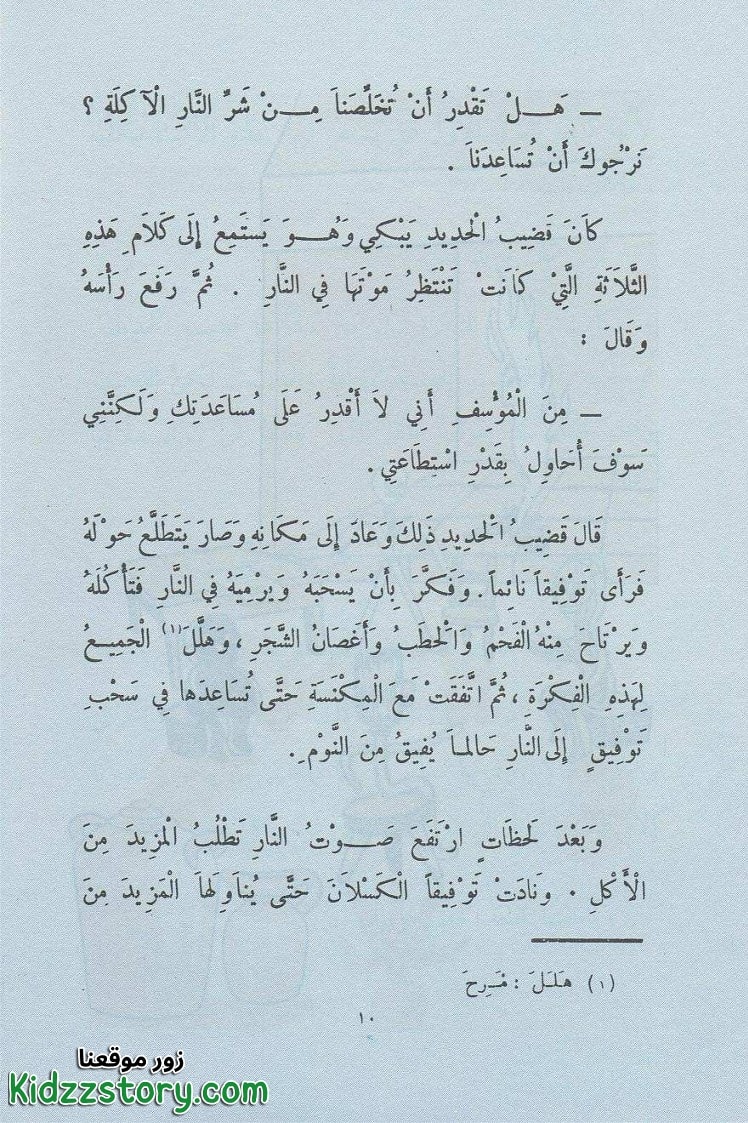 ـ هَـــلْ تَقْدِرُ أَنْ تُخَلِّصَنَا مِـــنْ شَرِّ النَّارِ الْآكِلَةِ ؟
نَرْجُوكَ أَنْ تُسَاعِدَنَا .
كَانَ قَضِيبُ الْحَدِيدِ يَبْكِي وَهُـــوَ يَسْتَمِعُ إِلَى كَلَامِ هَذِهِ
الثَّلَاثَةِ الَّتِيْ كَانَتْ تَنْتَظِرُ مَوْتَهَا فِي النَّارِ . ثُمَّ رَفَعَ رَأْسَهُ
وَقَالَ :
ـ مِنَ الْمُؤْسِفِ أَنِي لَا أَقْدِرُ عَلَى مُسَاعَدَتِكِ وَلَكِنَّنِي
سَوْفَ أُحَاوِلُ بِقَدْرِ اسْتِطَاعَتِي .
قَالَ قَضِيبُ الْحَدِيدِ ذَلِكَ وَعَادَ إِلَى مَكَانِهِ وَصَارَ يَتَطَلَّعُ حَوْلَهُ
فَرَأَى تَوْفِيقاً نَائِماً . وَفَكَّرَ بِأَنْ يَسْحَبَهُ وَيَرْمِيَهُ فِي النَّارِ فَتَأْكُلَهُ
وَيَرْتَاحَ مِنْهُ الْفَحْمُ وَالْحَطَبُ وَأَغْصَانُ الشَّجَرِ ، وَهَلَّلَ (١) الْجَمِيعُ
لِهَذِهِ الْفِكْرَةِ ، ثُمَّ اتَّفَقَتْ مَعَ الْمِكْنَسَةِ حَتَّى تُسَاعِدَهَا فِي سَحْبِ
تَوْفِيقٍ إِلَى النَّارِ حَالَمَا يُفِيقُ مِنَ النَّوْمِ .
وَبَعْدَ لَحَظَاتٍ ارْتَفَعَ صَـــوْتُ النَّارِ تَطْلُبُ الْمَزِيدَ مِنَ
الْأَكْلِ . وَنَادَتْ تَوْفِيقاً الْكَسْلَانَ حَتَّى يُنَاوِلَهَا الْمَزِيدَ مِنَ
(١) هَلَـلَ : مَـرِحَ
١٠
زور موقعنا
Kidzzstory.com